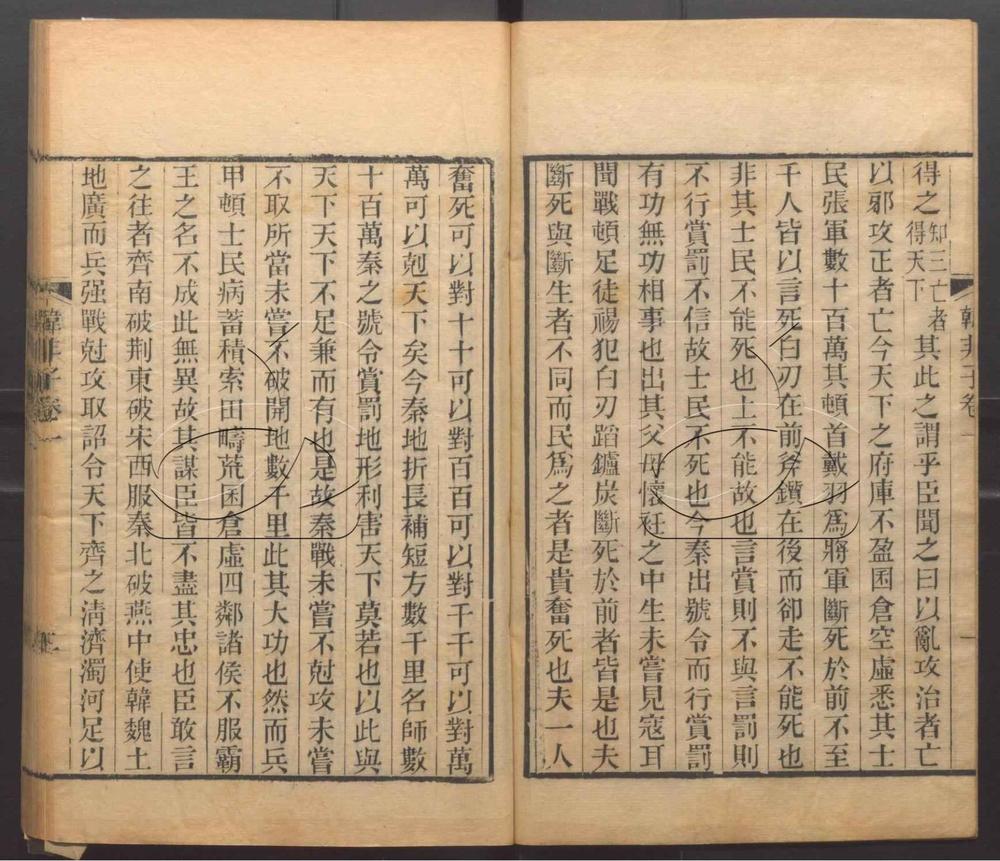 得之知三亡者得天下其此之謂乎臣聞之曰以亂攻治者亡
以邪攻正者亡今天下之府庫不盈囷倉空虛悉其士
民張軍數十百萬其頓首戴羽爲將軍斷死於前不至
千人皆以言死白刃在前斧鑕在後而卻走不能死也
非其士民不能死也上不能故也言賞則不與言罰則
不行賞罰不信故士民不死也今秦出號令而行賞罰
有功無功相事也出其父母懷衽之中生未嘗見寇耳
聞戰頓足徒裼犯白刃蹈鑪炭斷死於前者皆是也夫
斷死與斷生者不同而民爲之者是貴奮死也夫一人
韓非子卷一
一
奮死可以對十十可以對百百可以對千千可以對萬
萬可以剋天下矣今秦地折長補短方數千里名師數
十百萬秦之號令賞罰地形利害天下莫若也以此與
天下天下不足兼而有也是故秦戰未嘗不尅攻未嘗
不取所當未嘗不破開地數千里此其大功也然而兵
甲頓士民病蓄積索田疇荒囷倉虛四鄰諸侯不服霸
王之名不成此無異故其謀臣皆不盡其忠也臣敢言
之往者齊南破荆東破宋西服秦北破燕中使韓魏土
地廣而兵强戰尅攻取詔令天下齊之淸濟濁河足以
韓非子卷一